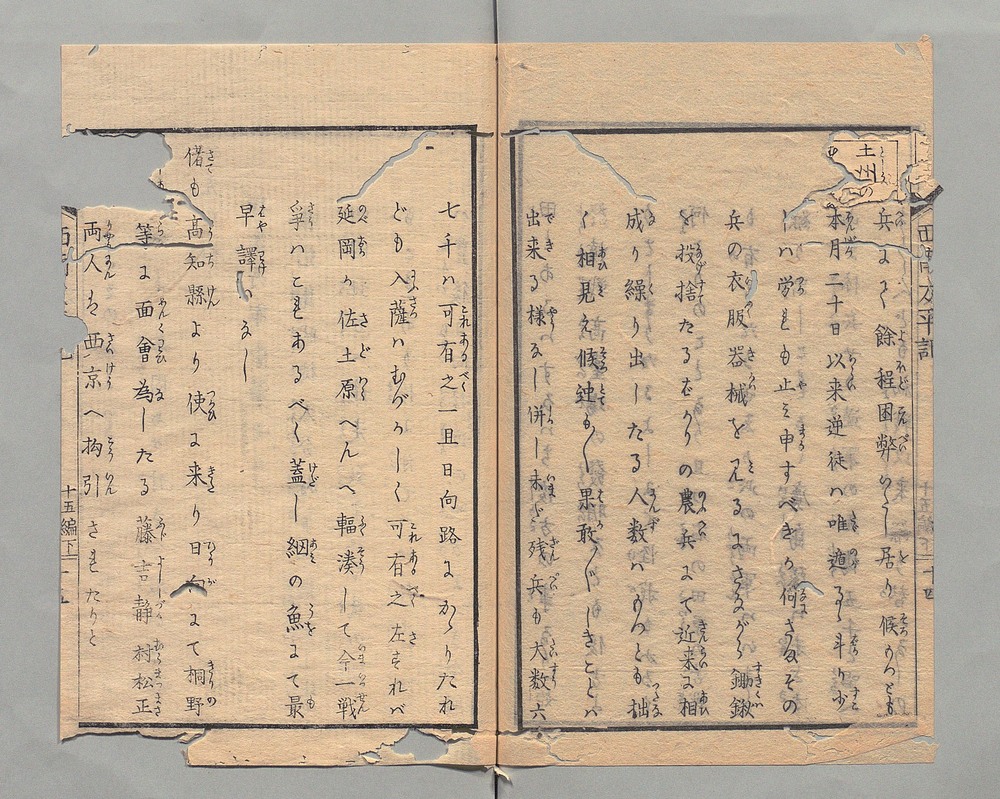 土州の
兵よく餘程困弊いたし居り候もつとも
本月二十日以来逆徒ハ唯遁るゝ斗り少
しハ労れも止ミ申すべきか何さまその
兵の衣服器械を見るにさながら鋤鍬
を投捨たるばかりの農兵にて近来に相
成り繰り出したる人数ハもつとも拙
く相見え候迚も〳〵果敢〴〵しきことハ
出来る様なし併し未だ残兵も大数六
七千ハ可有之一旦日向路にかゝりたれ
ども入薩ハむづかしく可有之左すれバ
延岡か佐土原へんへ輻湊して今一戦
争ハこれあるべく蓋し網の魚にて最
早譯ハなし
偖も高知縣より使に来り日向にて桐野
等に面會為したる藤吉静村松正
両人は西京へ拘引されたりと
十五編下